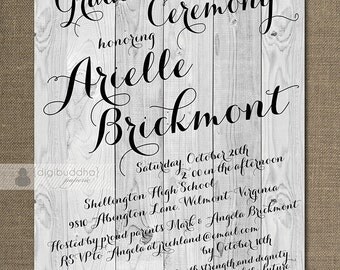 Ceremony
honoring
Arielle
Brickmont
Saturday October 26th
2:00 in the afternoon
Shellington High School
9810 Abington Lane, Welmont, Virginia
Hosted by proud parents Mark & Angela Brickmont
RSVP to Angela at jrichland@email.com
by October 10th
strength and dignity...
digibuddha
papers